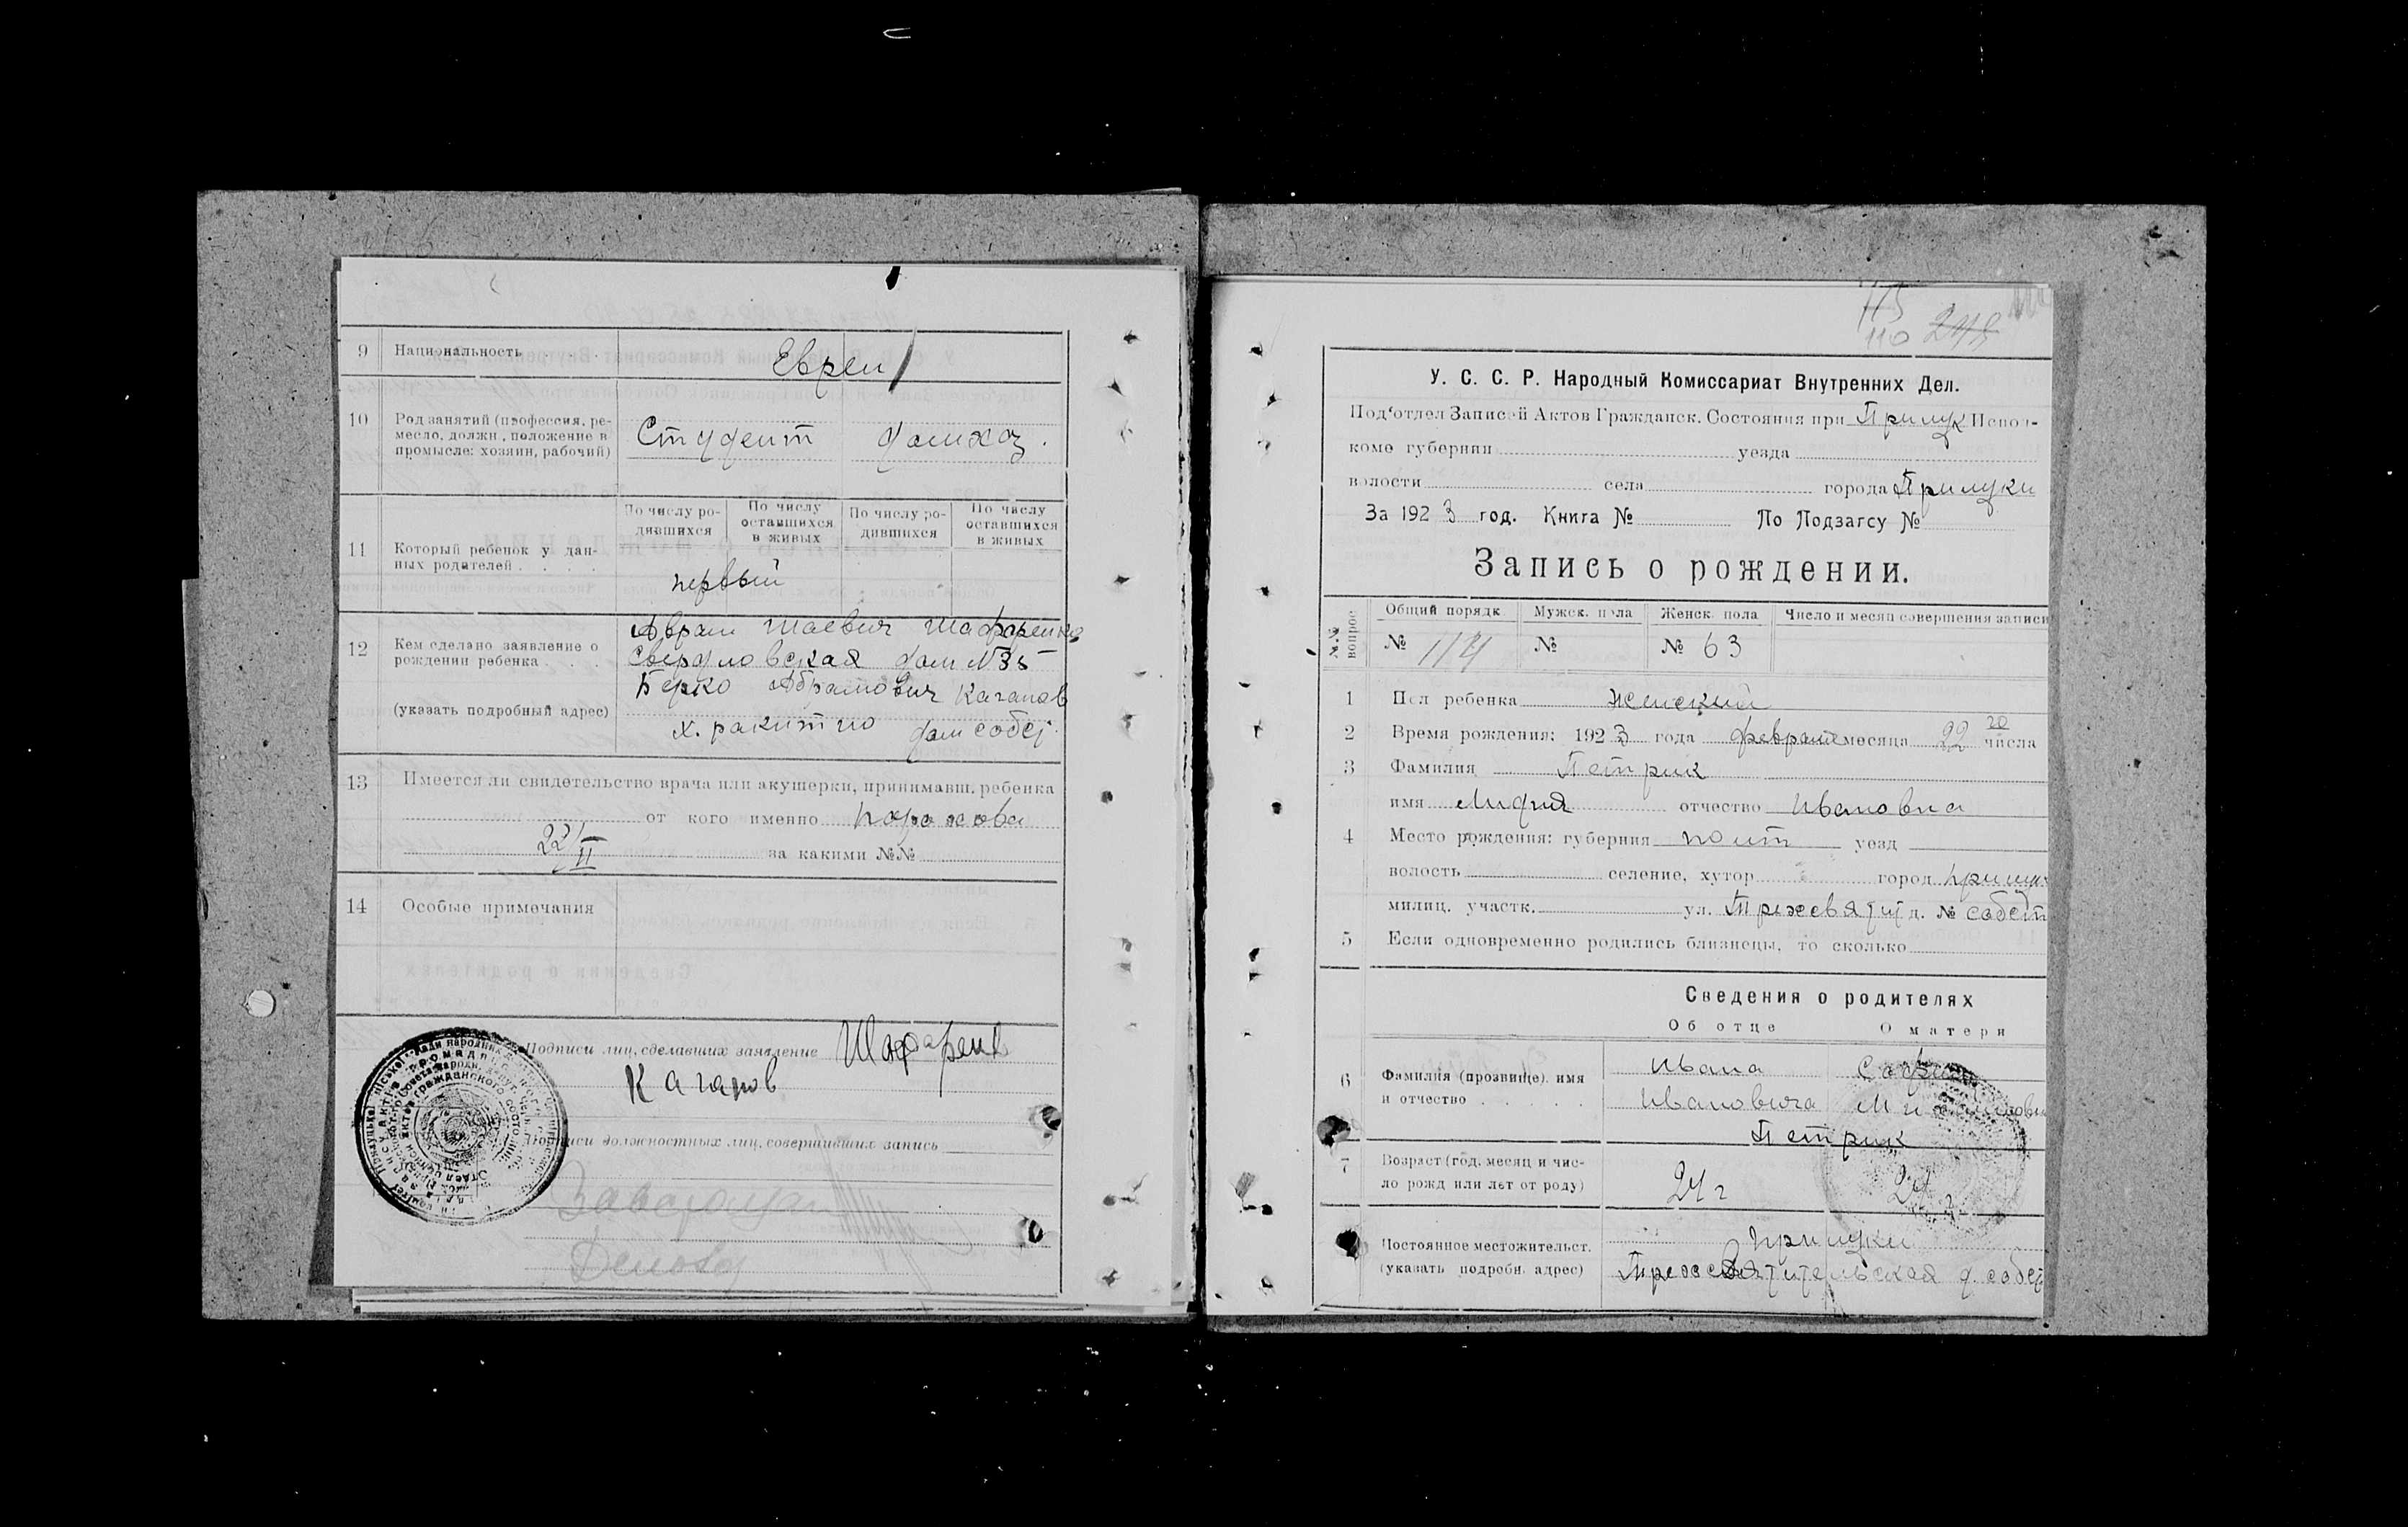 9 Национальность
Евреи
10 Род занятий (профессия, ре-
месло, должн., положение в
промысле: хозяин, рабочий)
Студент домхоз.
11 Который ребенок у дан-
ных родителей . . . .
По числу ро-
дившихся
По числу
оставшихся
в живых
По числу ро-
дившихся
По числу
оставшихся
в живых
первый
12 Кем сделано заявление о
рождении ребенка . . .
(указать подробный адрес)
Аврам Шаевич Шафаренко
Свердловская дом №35
Берко Абрамович Каганов
х. ракитно дом собст.
13 Имеется ли свидетельство врача или акушерки, принимавш. ребенка
от кого именно
22/II за какими №№
14 Особые примечания
Подписи лиц, сделавших заявление Шафаренко
Каганов
Подписи должностных лиц, совершивших запись
115
110 248
У. С. С. Р. Народный Комиссариат Внутренних Дел.
Под'отдел Записей Актов Гражданск. Состояния при Прилук Испол-
коме губернии уезда
волости села города Прилуки
За 1923 год. Книга № По Подзагсу №
Запись о рождении.
№№ вопрос
Общий порядк. Мужск. пола Женск. пола Число и месяц совершения записи
№ 114 № № 63
1 Пол ребенка женский
2 Время рождения: 1923 года февраля месяца 22 20 числа
3 Фамилия Петрик
имя Лидия отчество Ивановна
4 Место рождения: губерния полт уезд
волость селение, хутор город прилук
милиц. участк. ул. Трехсвятит д. № собст
5 Если одновременно родились близнецы, то сколько
Сведения о родителях
Об отце О матери
6 Фамилия (прозвище), имя
и отчество . . . . .
Ивана София
Ивановича
Петрик
7 Возраст (год, месяц и чис-
ло рожд или лет от роду)
24 г 24 г.
Постоянное местожительст.
(указать подробн. адрес)
прилуки
Трехсвятительская д. собст